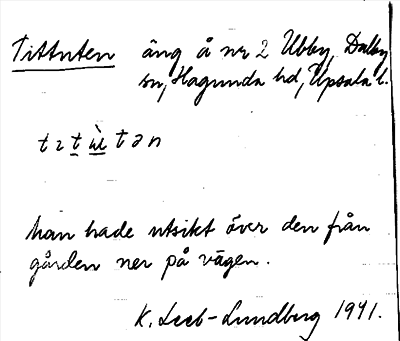 Tittuten äng å nr 2 Ubby, Dalby
sn, Hagunda hd, Upsala l.
Man hade utsikt över den från
gården ner på vägen.
K. Leeb-Lundberg 1941.